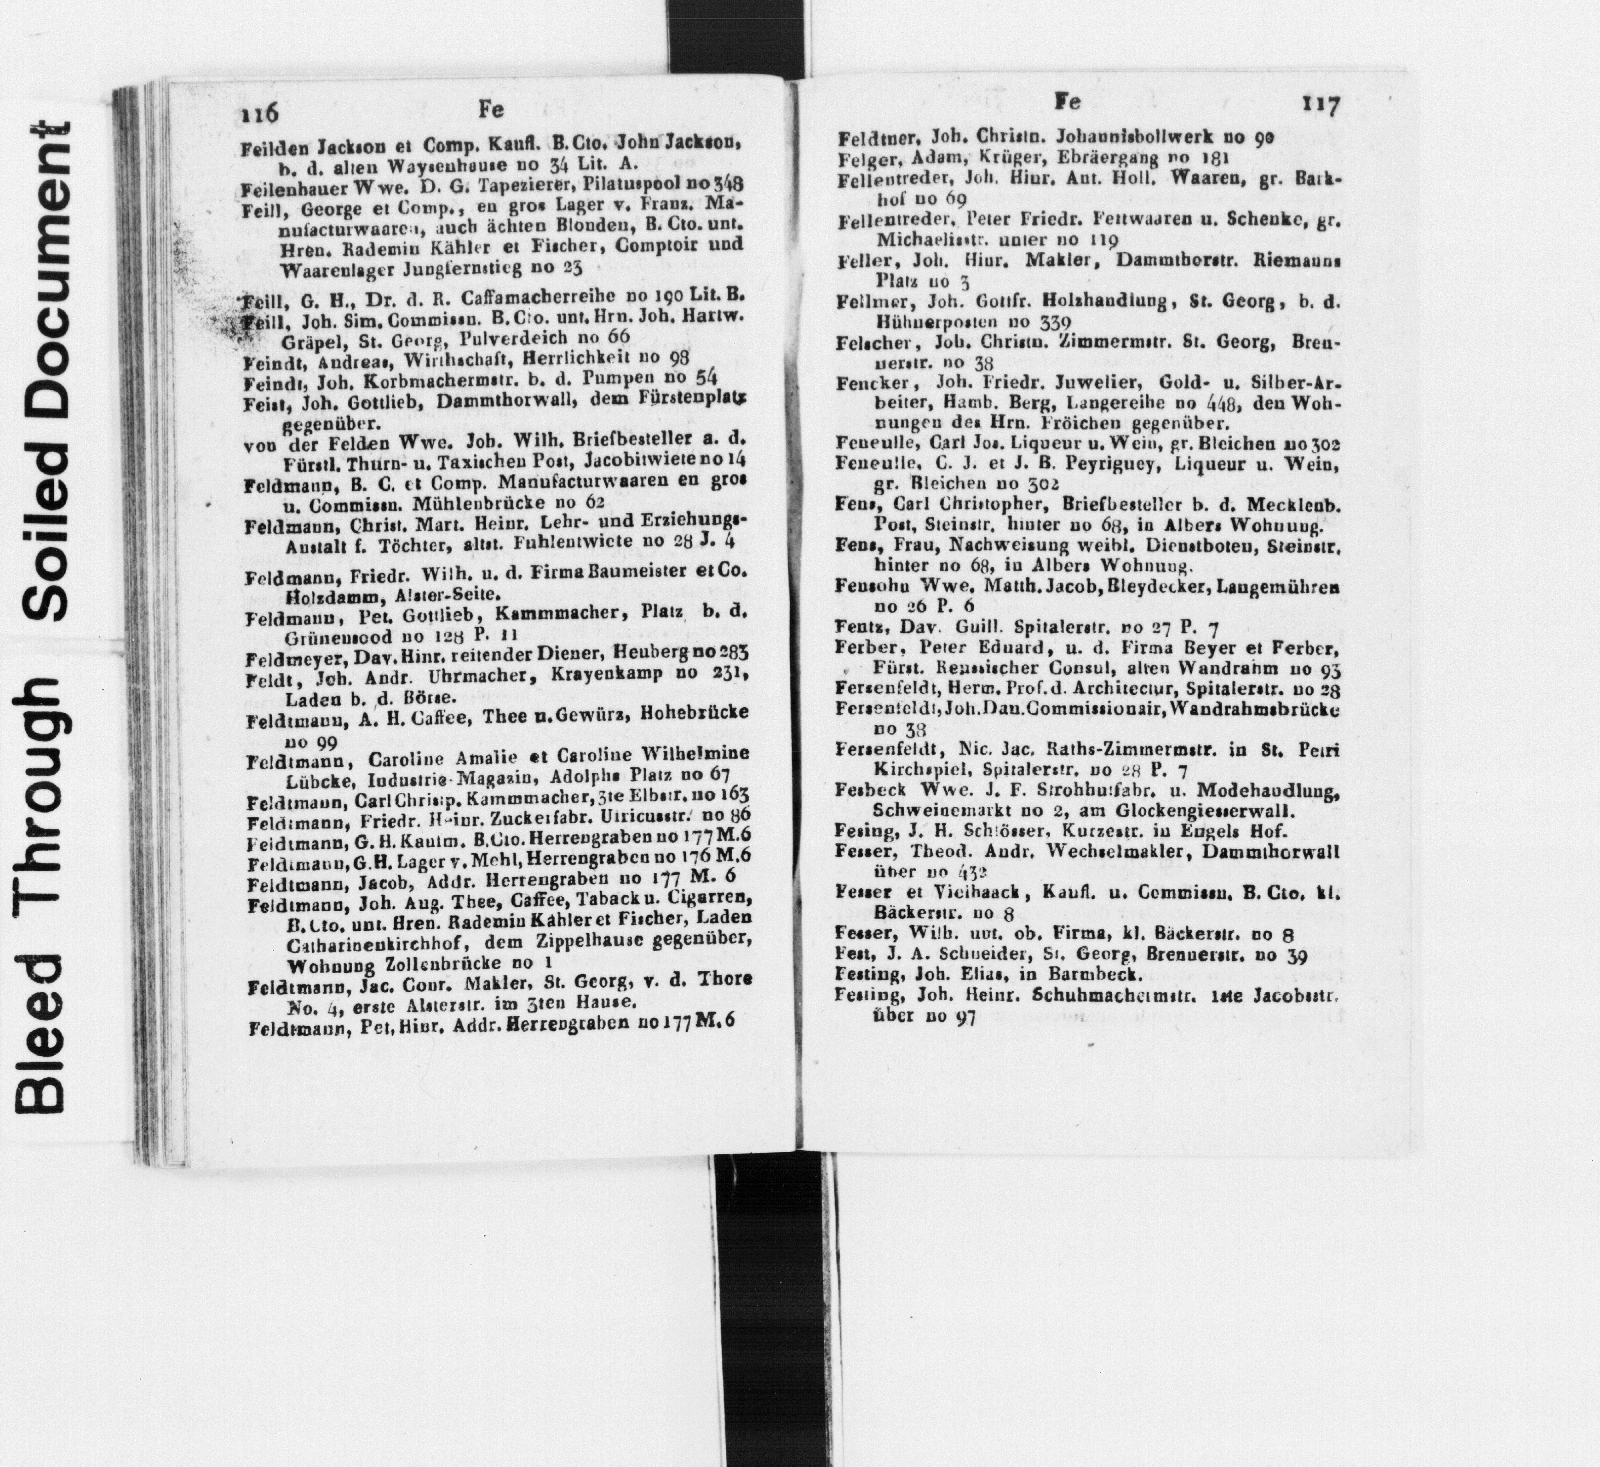 Bleed Through Soiled Document
116 Fe
Feilden Jackson et Comp. Kaufl. B. Cto. John Jackson,
b. d. alten Waysenhause no 34 Lit. A.
Feilenhauer Wwe. D. G. Tapezierer, Pilatuspool no 348
Feill, George et Comp., en gros Lager v. Franz. Ma-
nufacturwaaren, auch ächten Blonden, B. Cto. unt.
Hren. Rademin Kähler et Fischer, Comptoir und
Waarenlager Jungfernstieg no 23
Feill, G. H., Dr. d. R. Caffamacherreihe no 190 Lit. B.
Feill, Joh. Sim. Commissn. B. Cto. unt. Hrn. Joh. Hartw.
Gräpel, St. Georg, Pulverdeich no 66
Feindt, Andreas, Wirthschaft, Herrlichkeit no 98
Feindt, Joh. Korbmachermstr. b. d. Pumpen no 54
Feist, Joh. Gottlieb, Dammthorwall, dem Fürstenplatz
gegenüber.
von der Felden Wwe. Joh. Wilh. Briefbesteller a. d.
Fürstl. Thurn- u. Taxischen Post, Jacobitwiete no 14
Feldmann, B. C. et Comp. Manufacturwaaren en gros
u. Commissn. Mühlenbrücke no 62
Feldmann, Christ. Mart. Heinr. Lehr- und Erziehungs-
Anstalt f. Töchter, altst. Fuhlentwiete no 28 J. 4
Feldmann, Friedr. Wilh. u. d. Firma Baumeister et Co.
Holzdamm, Alster-Seite.
Feldmann, Pet. Gottlieb, Kammmacher, Platz b. d.
Grünensood no 128 P. 11
Feldmeyer, Dav. Hinr. reitender Diener, Heuberg no 283
Feldt, Joh. Andr. Uhrmacher, Krayenkamp no 231,
Laden b. d. Börse.
Feldtmann, A. H. Caffee, Thee u. Gewürz, Hohebrücke
no 99
Feldtmann, Caroline Amalie et Caroline Wilhelmine
Lübcke, Industrie-Magazin, Adolphs Platz no 67
Feldtmann, Carl Christp. Kammmacher, 3te Elbstr. no 163
Feldtmann, Friedr. Heinr. Zuckerfabr. Ulricusstr. no 86
Feldtmann, G. H. Kaufm. B. Cto. Herrengraben no 177 M. 6
Feldtmann, G. H. Lager v. Mehl, Herrengraben no 176 M. 6
Feldtmann, Jacob, Addr. Herrengraben no 177 M. 6
Feldtmann, Joh. Aug. Thee, Caffee, Taback u. Cigarren,
B. Cto. unt. Hren. Rademin Kähler et Fischer, Laden
Catharinenkirchhof, dem Zippelhause gegenüber,
Wohnung Zollenbrücke no 1
Feldtmann, Jac. Conr. Makler, St. Georg, v. d. Thore
No. 4, erste Alsterstr. im 3ten Hause.
Feldtmann, Pet. Hinr. Addr. Herrengraben no 177 M. 6
Fe 117
Feldtner, Joh. Christn. Johannisbollwerk no 90
Felger, Adam, Krüger, Ebräergang no 181
Fellentreder, Joh. Hinr. Ant. Holl. Waaren, gr. Bark-
hof no 69
Fellentreder, Peter Friedr. Fettwaaren u. Schenke, gr.
Michaelisstr. unter no 119
Feller, Joh. Hinr. Makler, Dammthorstr. Riemanns
Platz no 3
Fellmer, Joh. Gottfr. Holzhandlung, St. Georg, b. d.
Hühnerposten no 339
Felscher, Joh. Christn. Zimmermstr. St. Georg, Bren-
nerstr. no 38
Fencker, Joh. Friedr. Juwelier, Gold- u. Silber-Ar-
beiter, Hamb. Berg, Langereihe no 448, den Woh-
nungen des Hrn. Fröichen gegenüber.
Feneulle, Carl Jos. Liqueur u. Wein, gr. Bleichen no 302
Feneulle, C. J. et J. B. Peyriguey, Liqueur u. Wein,
gr. Bleichen no 302
Fens, Carl Christopher, Briefbesteller b. d. Mecklenb.
Post, Steinstr. hinter no 68, in Albers Wohnung.
Fens, Frau, Nachweisung weibl. Dienstboten, Steinstr.
hinter no 68, in Albers Wohnung.
Fensohn Wwe. Matth. Jacob, Bleydecker, Langemühren
no 26 P. 6
Fentz, Dav. Guill. Spitalerstr. no 27 P. 7
Ferber, Peter Eduard, u. d. Firma Beyer et Ferber,
Fürst. Reussischer Consul, alten Wandrahm no 93
Fersenfeldt, Herm. Prof. d. Architectur, Spitalerstr. no 28
Fersenfeldt, Joh. Dan. Commissionair, Wandrahmsbrücke
no 38
Fersenfeldt, Nic. Jac. Raths-Zimmermstr. in St. Petri
Kirchspiel, Spitalerstr. no 28 P. 7
Fesbeck Wwe. J. F. Strohhutfabr. u. Modehandlung,
Schweinemarkt no 2, am Glockengiesserwall.
Fesing, J. H. Schlösser, Kurzestr. in Engels Hof.
Fesser, Theod. Andr. Wechselmakler, Dammthorwall
über no 432
Fesser et Vielhaack, Kaufl. u. Commissn. B. Cto. kl.
Bäckerstr. no 8
Fesser, Wilh. unt. ob. Firma, kl. Bäckerstr. no 8
Fest, J. A. Schneider, St. Georg, Brennerstr. no 39
Festing, Joh. Elias, in Barmbeck.
Festing, Joh. Heinr. Schuhmachermstr. 1ste Jacobsstr.
über no 97